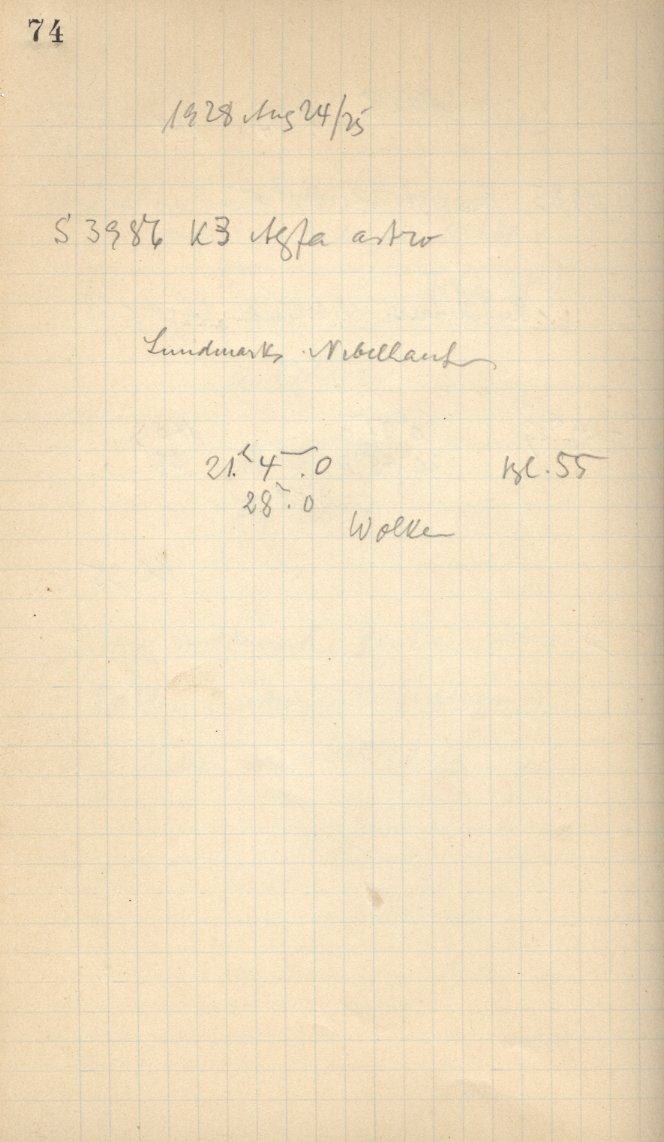 74
1928 Aug 24/25
S 3986 K3 Agfa astro
Lundmarks Nebelhauf
21.h 4m.0 Bl. 55
28m.0
Wolken